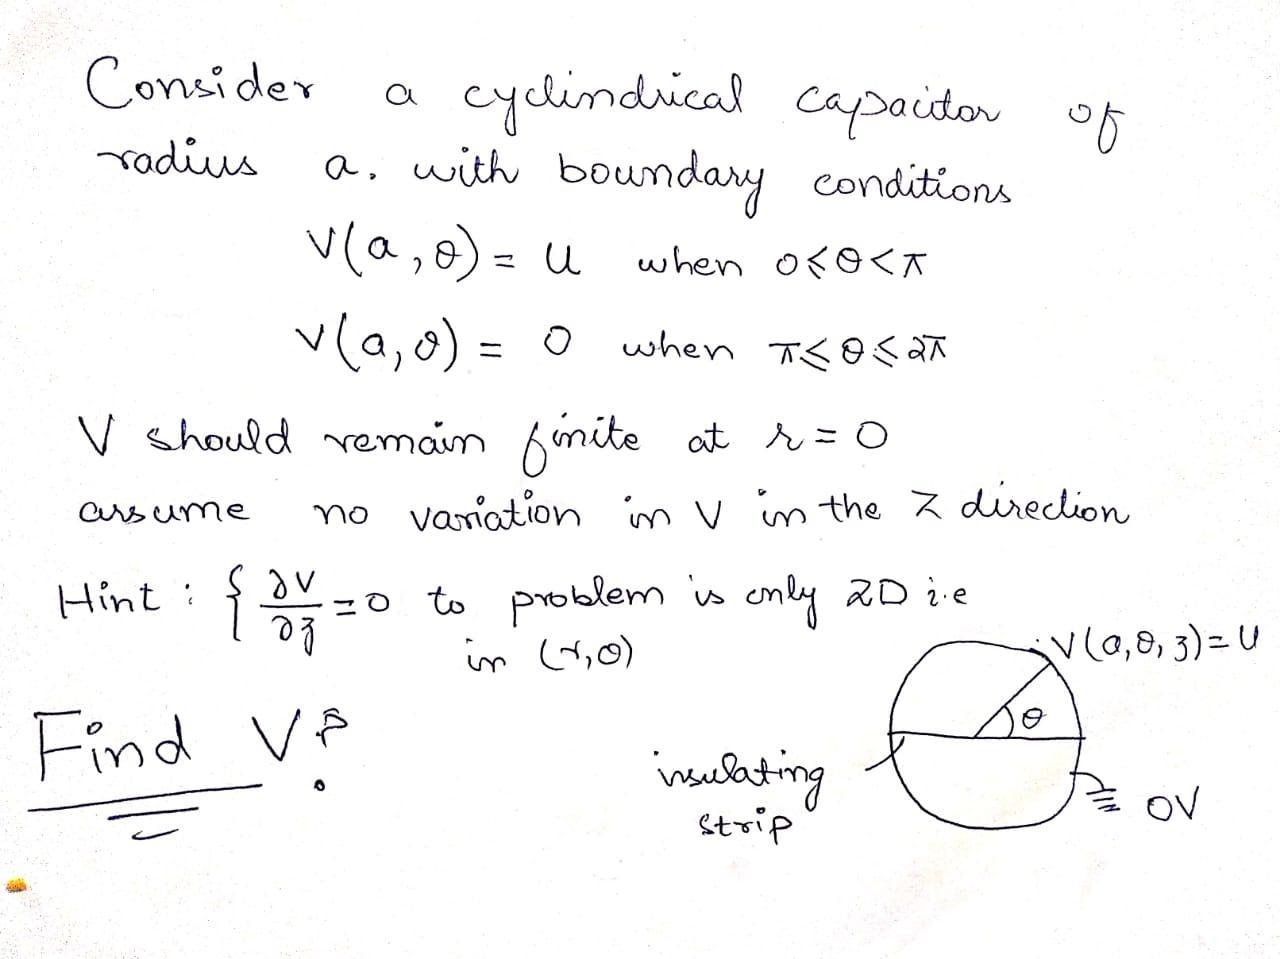 Consider a cyclindrical capacitor of
radius a. with boundary conditions
V(a,θ) = U when 0≤θ<π
V(a,θ) = 0 when π≤θ≤2π
V should remain finite at r=0
assume no variation in V in the Z direction
Hint : { ∂V/∂z =0 to problem is only 2D i.e
in (r,θ)
V(a,θ,z)=U
θ
Find V?
insulating
strip
0V